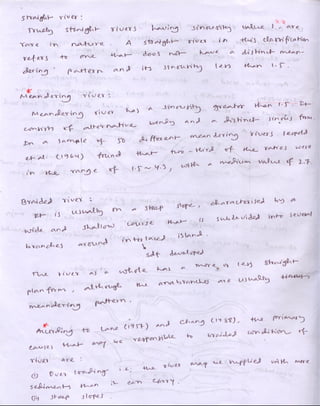 straight river:
Truely straight rivers having sinuosity value 1, are
rare in nature. A straight river in this classification
refers to one that does not have a distinct mean-
dering pattern and its sinuosity less than 1.5.
Meandering river:
Meandering river has a sinuosity greater than 1.5. It
consists of alternative bends and a distinct sinous form.
In a sample of 50 different meandering rivers leopold
et al (1964) found that two-third of the ratios were
in the range of 1.5~4.3, with a medium value of 2.7.
Braided river:
It is usually on a steep slope, characterised by a
wide and shallow course that is subdevided into several
branches around interlaced island.
self developed
The river as a whole has a more or less straight
planform, although the anabranches are usually
meandering pattern.
According to Lane (1957) and Chang (1985), the primary
causes that may be responsible to braided condition of
river are:
(i) Over loading i.e, the river may be supplied with more
sediments than it can carry.
(ii) steep slopes.